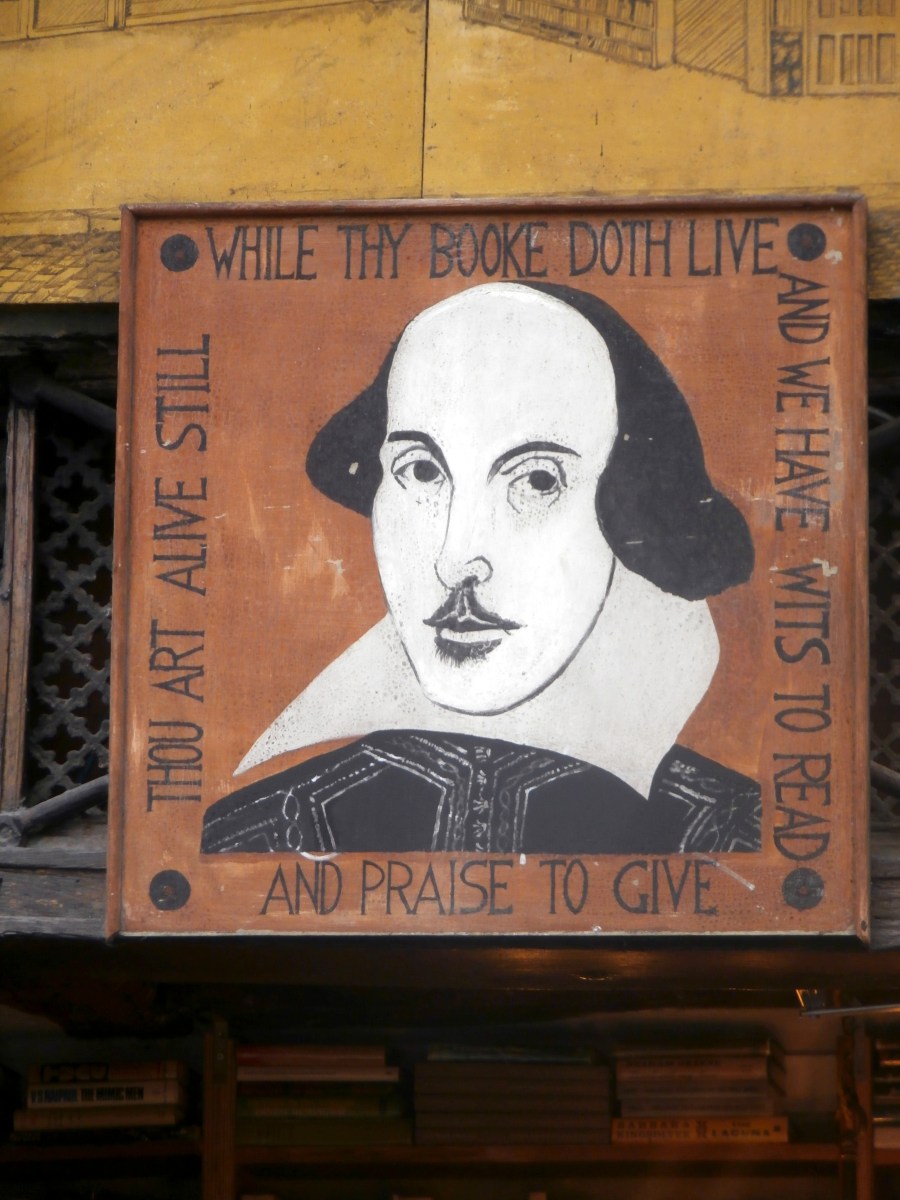 THOU ART ALIVE STILL
WHILE THY BOOKE DOTH LIVE
AND WE HAVE WITS TO READ
AND PRAISE TO GIVE